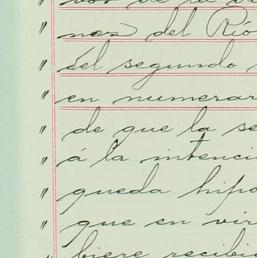 nos del Río
del segundo
en numerar
de que la se
á la intenci
queda hipo
que en vir
biere recibi